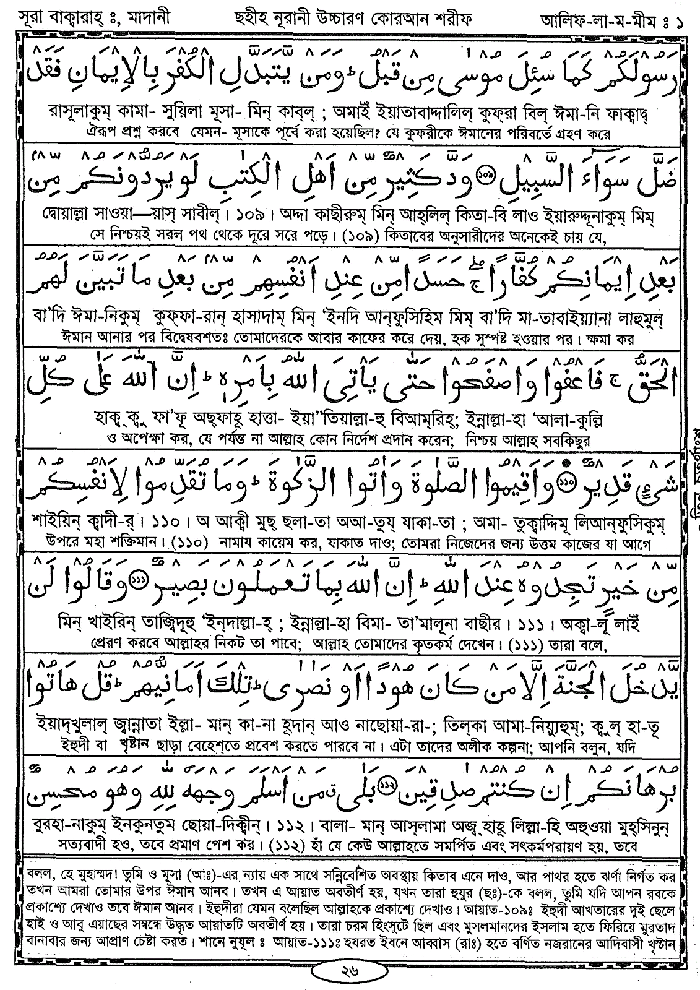 সূরা বাক্বারাহ্ ঃ, মাদানী ছহীহ নূরানী উচ্চারণ কোরআন শরীফ আলিফ-লা-ম-মীম ঃ ১
رَسُولَكُمْ كَمَا سُئِلَ مُوسَى مِنْ قَبْلُ ؕ وَمَنْ يَّتَبَدَّلِ الْكُفْرَ بِالْإِيمَانِ فَقَدْ
রাসূলাকুম্ কামা- সুয়িলা মূসা- মিন্ ক্বাব্ল্ ; অমাইঁ ইয়াতাবাদ্দালিল্ কুফ্রা বিল্ ঈমা-নি ফাক্বাদ্ব
ঐরূপ প্রশ্ন করবে যেমন- মূসাকে পূর্বে করা হয়েছিল? যে কুফরীকে ঈমানের পরিবর্তে গ্রহণ করে
ضَلَّ سَوَاءَ السَّبِيلِ ⑩⑨ وَدَّ كَثِيرٌ مِّنْ أَهْلِ الْكِتٰبِ لَوْ يَرُدُّونَكُمْ مِّنْ
দ্বোয়াল্লা সাওয়া—য়াস্ সাবীল্ । ১০৯। অদ্দা কাছীরুম্ মিন্ আহ্লিল্ কিতা-বি লাও ইয়ারুদ্দূনাকুম্ মিম্
সে নিশ্চয়ই সরল পথ থেকে দূরে সরে পড়ে। (১০৯) কিতাবের অনুসারীদের অনেকেই চায় যে,
بَعْدِ إِيمَانِكُمْ كُفَّارًا ۚ حَسَدًا مِّنْ عِنْدِ أَنْفُسِهِمْ مِّنْ بَعْدِ مَا تَبَيَّنَ لَهُمُ
বা'দি ঈমা-নিকুম্ কুফ্ফা-রান্ হাসাদাম্ মিন্ 'ইন্দি আন্ফুসিহিম মিম্ বা'দি মা-তাবাইয়্যানা লাহুমুল্
ঈমান আনার পর বিদ্বেষবশতঃ তোমাদেরকে আবার কাফের করে দেয়, হক সুস্পষ্ট হওয়ার পর। ক্ষমা কর
الْحَقُّ ۚ فَاعْفُوا وَاصْفَحُوا حَتّٰى يَأْتِيَ اللّٰهُ بِأَمْرِهٖ ؕ إِنَّ اللّٰهَ عَلٰى كُلِّ
হাক্ব্ কু ফা'ফূ অছ্ফাহূ হাত্তা- ইয়া''তিয়াল্লা-হু বিআম্রিহ্; ইন্নাল্লা-হা 'আলা-কুল্লি
ও অপেক্ষা কর, যে পর্যন্ত না আল্লাহ কোন নির্দেশ প্রদান করেন; নিশ্চয় আল্লাহ সবকিছুর
شَيْءٍ قَدِيرٌ ⑪⓪ وَأَقِيمُوا الصَّلٰوةَ وَاٰتُوا الزَّكٰوةَ ؕ وَمَا تُقَدِّمُوا لِأَنْفُسِكُمْ
শাইয়িন্ ক্বাদী-র্ । ১১০। অ আক্বী মুছ্ ছলা-তা অআ-তুয্ যাকা-তা ; অমা- তুক্বাদ্দিমূ লিআন্ফুসিকুম্
উপরে মহা শক্তিমান। (১১০) নামায কায়েম কর, যাকাত দাও; তোমরা নিজেদের জন্য উত্তম কাজের যা আগে
مِّنْ خَيْرٍ تَجِدُوهُ عِنْدَ اللّٰهِ ؕ إِنَّ اللّٰهَ بِمَا تَعْمَلُونَ بَصِيرٌ ⑪① وَقَالُوا لَنْ
মিন্ খাইরিন্ তাজিদূহু 'ইন্দাল্লা-হ্ ; ইন্নাল্লা-হা বিমা- তা'মালূনা বাছীর। ১১১। অক্বা-লূ লাইঁ
প্রেরণ করবে আল্লাহর নিকট তা পাবে; আল্লাহ তোমাদের কৃতকর্ম দেখেন। (১১১) তারা বলে,
يَّدْخُلَ الْجَنَّةَ إِلَّا مَنْ كَانَ هُودًا أَوْ نَصٰرٰى ؕ تِلْكَ أَمَانِيُّهُمْ ؕ قُلْ هَاتُوا
ইয়াদ্খুলাল্ জ্বান্নাতা ইল্লা- মান্ কা-না হূদান্ আও নাছোয়া-রা-; তিল্কা আমা-নিয়্যুহুম্; ক্বুল্ হা-তূ
ইহুদী বা খৃষ্টান ছাড়া বেহেশতে প্রবেশ করতে পারবে না। এটা তাদের অলীক কল্পনা; আপনি বলুন, যদি
بُرْهَانَكُمْ إِنْ كُنْتُمْ صٰدِقِينَ ⑪② بَلٰى ۤ مَنْ أَسْلَمَ وَجْهَهٗ لِلّٰهِ وَهُوَ مُحْسِنٌ
বুরহা-নাকুম্ ইনকুনতুম ছোয়া-দিক্বীন্ । ১১২। বালা- মান্ আস্লামা অজ্ব্ হাহূ লিল্লা-হি অহুওয়া মুহ্সিনুন্
সত্যবাদী হও, তবে প্রমাণ পেশ কর। (১১২) হাঁ যে কেউ আল্লাহতে সমর্পিত এবং সৎকর্মপরায়ণ হয়, তবে
বলল, হে মুহাম্মদ! তুমি ও মূসা (আঃ)-এর ন্যায় এক সাথে সন্নিবেশিত অবস্থায় কিতাব এনে দাও, আর পাথর হতে ঝর্ণা নির্গত কর
তখন আমরা তোমার উপর ঈমান আনব। তখন এ আয়াত অবতীর্ণ হয়, যখন তারা হুযুর (ছঃ)-কে বলল, তুমি যদি আপন রবকে
প্রকাশ্যে দেখাও তবে ঈমান আনব। ইহুদীরা যেমন বলেছিল আল্লাহকে প্রকাশ্যে দেখাও। আয়াত-১০৯ঃ ইহুদী আখতারের দুই ছেলে
হাই ও আবু এয়াছের সম্বন্ধে উদ্ধৃত আয়াতটি অবতীর্ণ হয়। তারা চরম হিংসুটে ছিল এবং মুসলমানদের ইসলাম হতে ফিরিয়ে মুরতাদ
বানাবার জন্য আপ্রাণ চেষ্টা করত। শানে নুযূল ঃ আয়াত-১১১ঃ হযরত ইবনে আব্বাস (রাঃ) হতে বর্ণিত নজরানের আদিবাসী খৃষ্টান
২৬